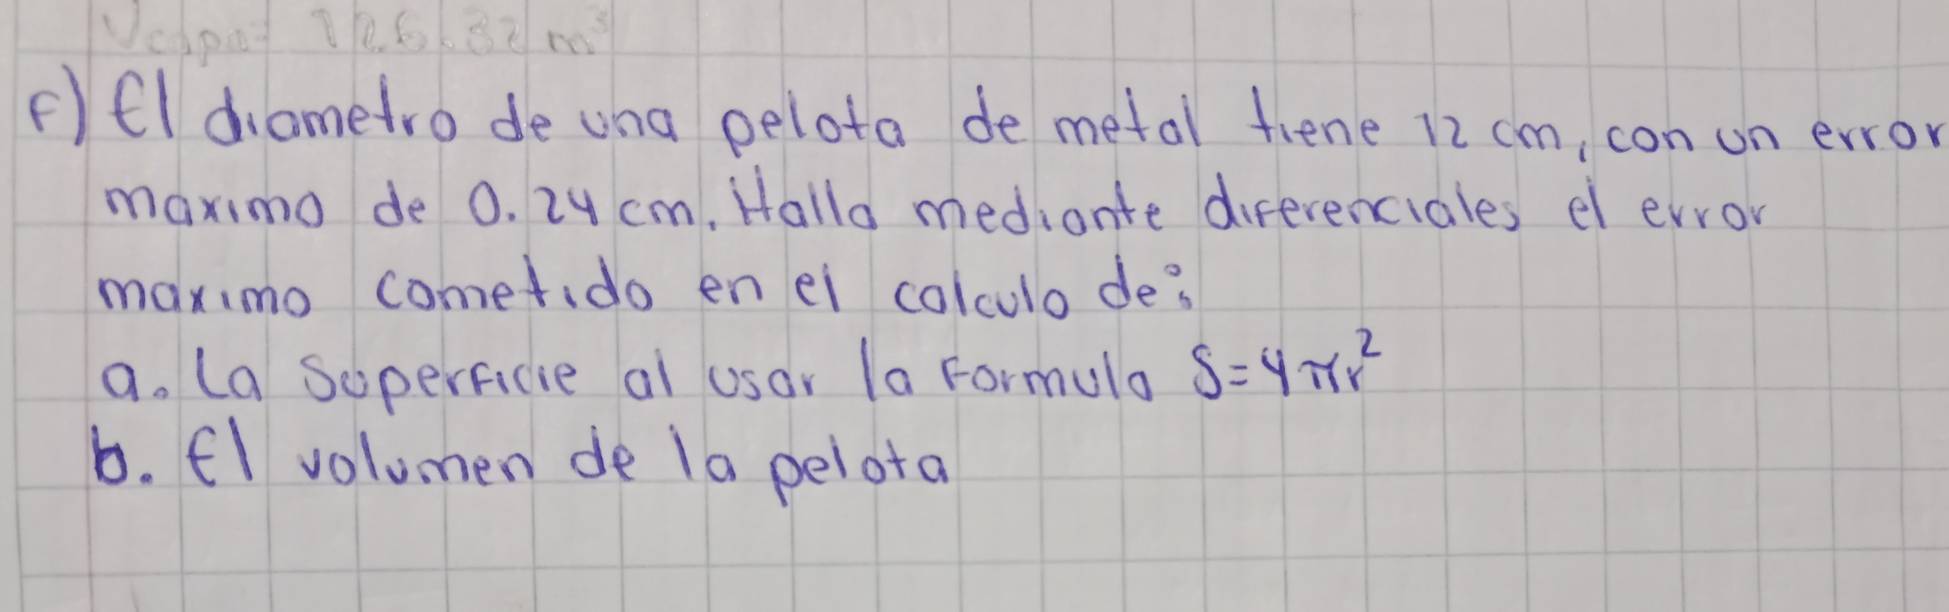 Vcapa= 126.32 m³
f) El diametro de una pelota de metal tiene 12 cm, con un error
maximo de 0.24 cm. Halla mediante diferenciales el error
maximo cometido en el calculo de:
a. La superficie al usar la formula S=4πr²
b. El volumen de la pelota